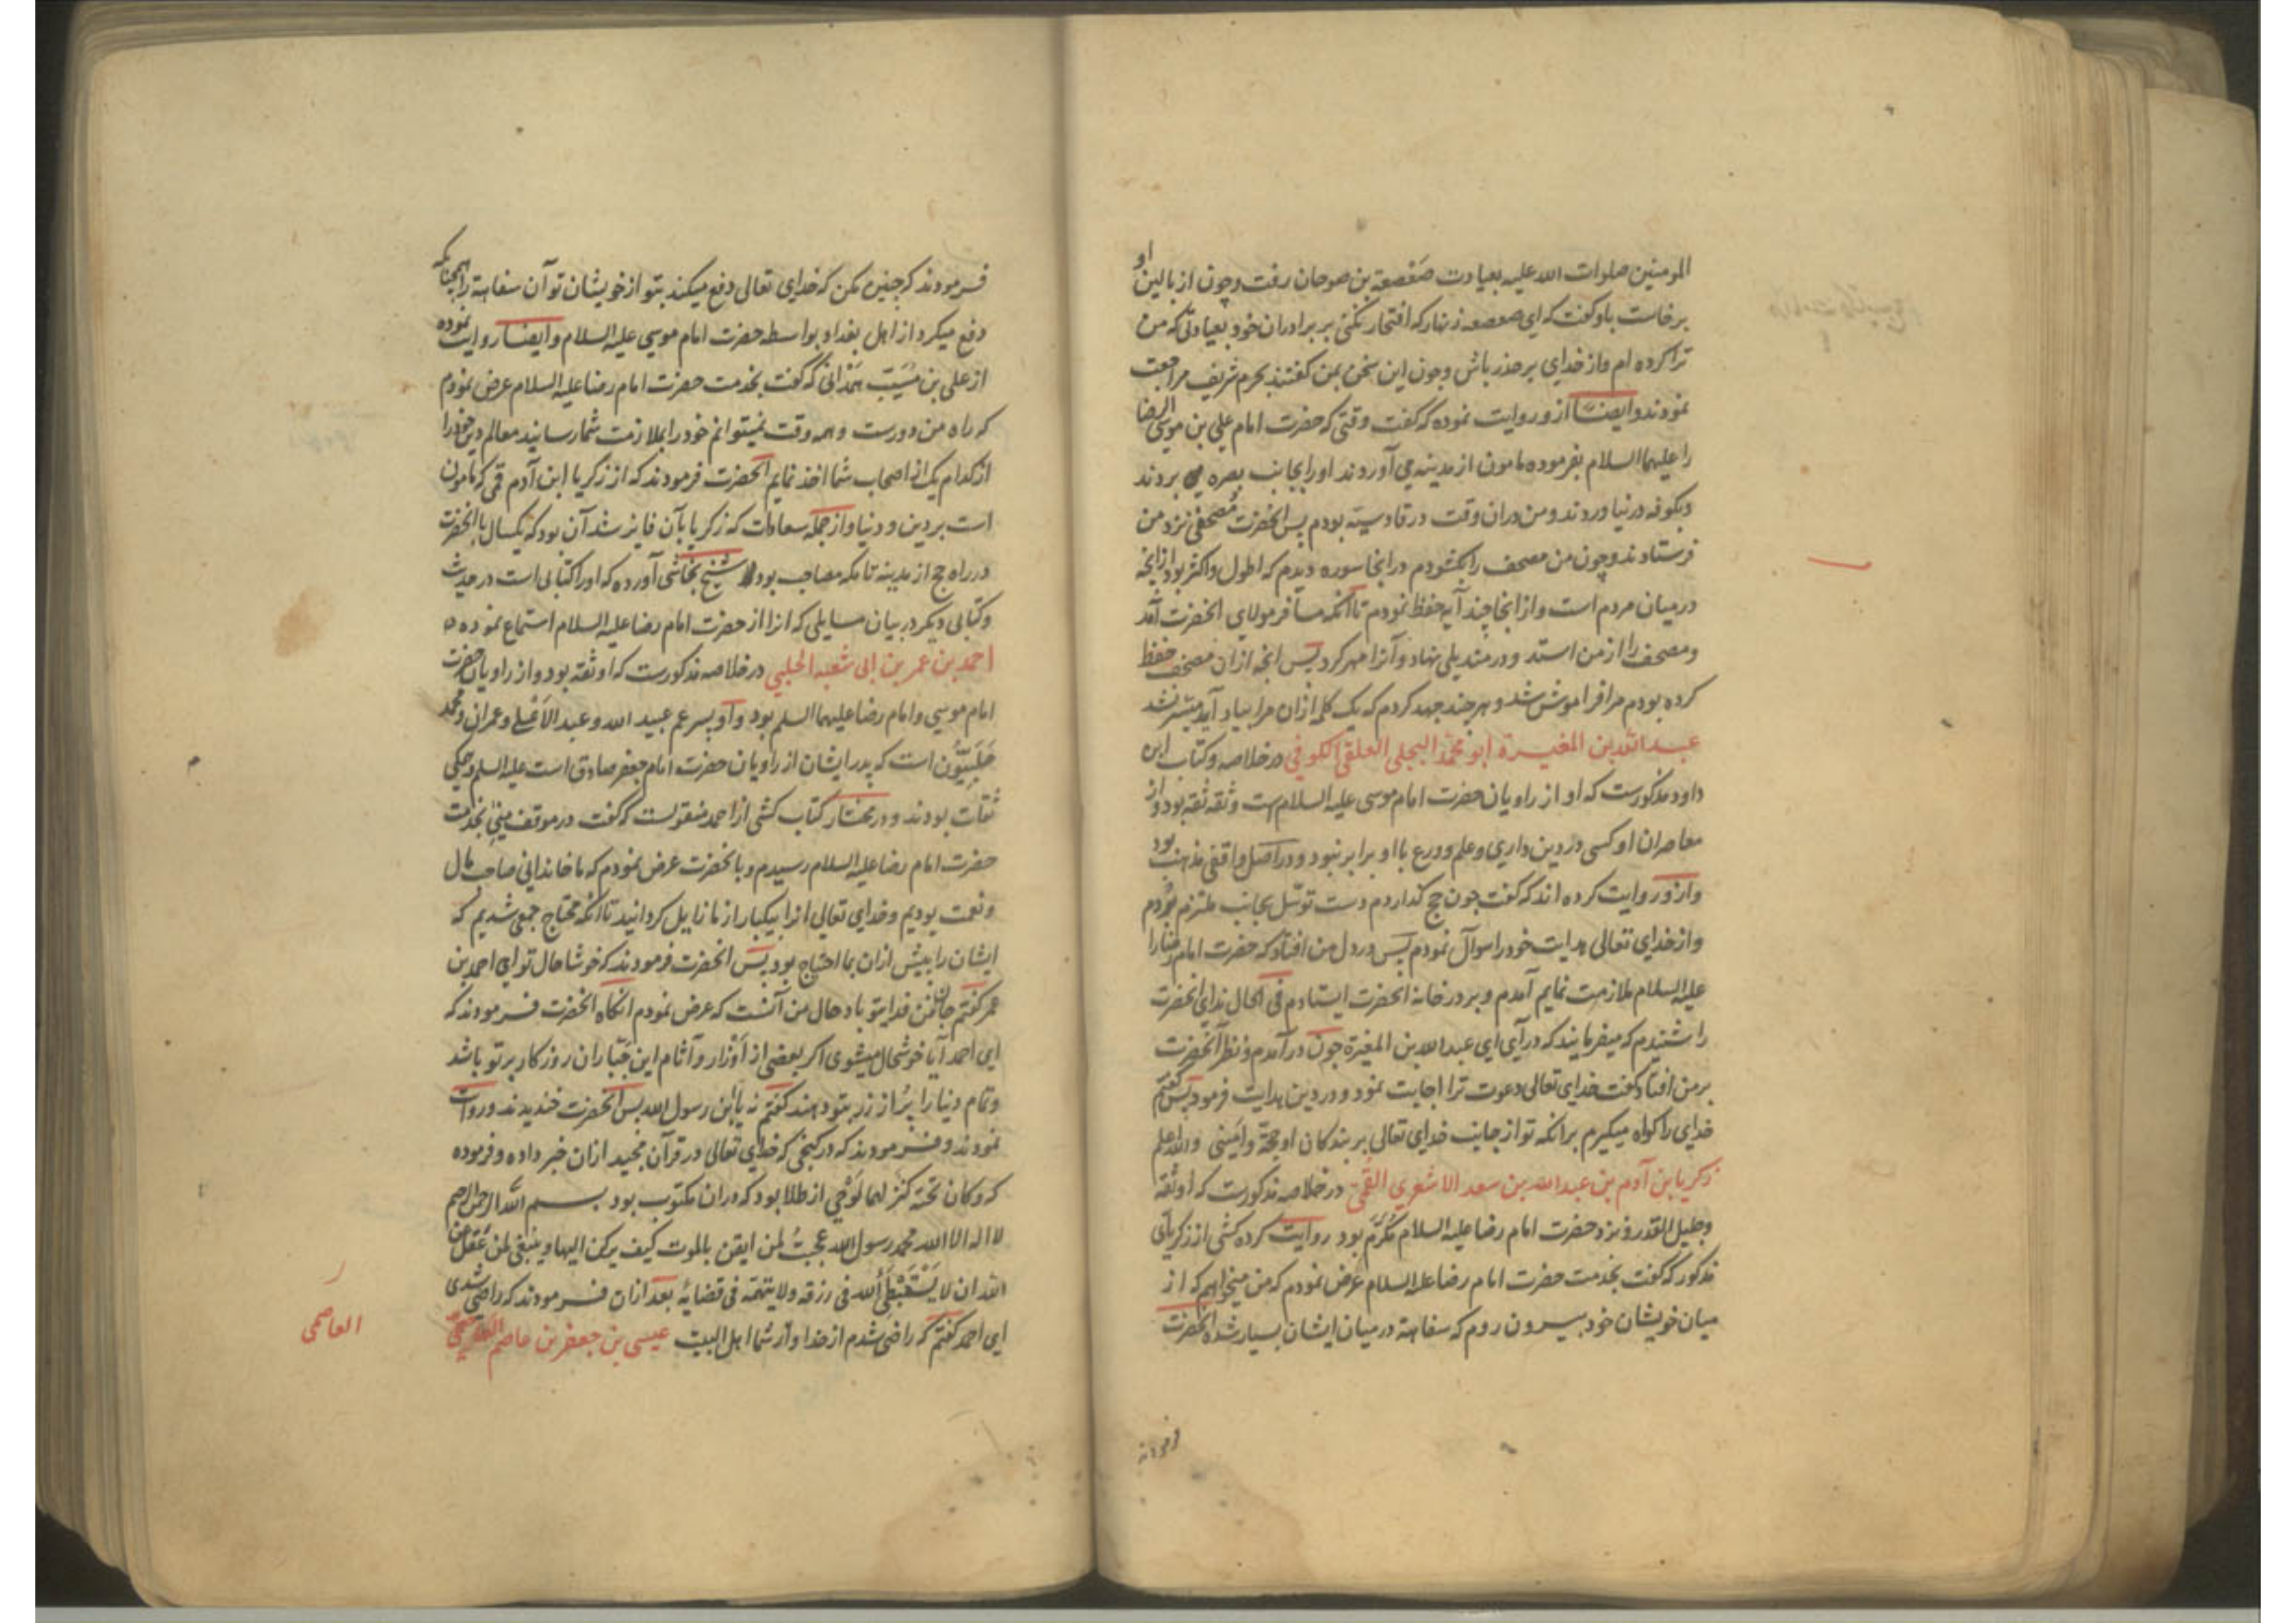 المومنین صلوات الله علیه بعیادت صعصعة بن صوحان رفت وچون از بالین او
برخاست باو کفت که ای صعصعه زنهار که افتخار نکنی بر برادران خود بعیادتی که من
ترا کرده ام واز خدای بر حذر باش وچون این سخن بمن کفتند بحرم شریف مراجعت
نمودند وایضا ازو روایت نموده که کفت وقتی که حضرت امام علی بن موسی الرضا
را علیهما السلام بفرموده مامون از مدینه می آوردند او را بجانب بصره می بردند
وبکوفه در نیاوردند ومن دران وقت در قادسیّه بودم پس انحضرت مُصحفی نزد من
فرستادند وچون من مصحف را بکشودم درانجا سوره دیدم که اطول واکثر بود ازانچه
در میان مردم است وازانجا چند آیه حفظ نمودم تا آنکه مسافر مولای انحضرت آمد
ومصحف را از من استد ودر مندیلی نهاد وآنرا مهر کرد پس انچه ازان مصحف حفظ
کرده بودم مرا فراموش شد وهر چند جهد کردم که یک کلمه ازان مرا بیاد آید میسّر نشد
عبد الله بن المغیرة ابو محمّد البجلی العلقی الکوفی در خلاصه وکتاب ابن
داود مذکورست که او از راویان حضرت امام موسی علیه السلام ست وثقه ثقه بود واز
معاصران او کسی در دین داری وعلم وورع با او برابر نبود ودر اصل واقفی مذهب بود
وازو روایت کرده اند که کفت چون حج کذاردم دست توسّل بجانب ملتزم بردم
واز خدای تعالی هدایت خود را سوال نمودم پس در دل من افتاد که حضرت امام رضا را
علیه السلام ملازمت نمایم آمدم وبر در خانه انحضرت ایستادم فی الحال ندای انحضرت
را شنیدم که میفرمایند که درآی ای عبد الله بن المغیرة چون درآمدم ونظر آنحضرت
بر من افتاد کفت خدای تعالی دعوت ترا اجابت نمود ودر دین هدایت فرمود پس کفتم
خدای را کواه میکیرم برانکه تو از جانب خدای تعالی بر بندکان او حجّة وامینی والله اعلم
زکریا بن آدم بن عبد الله بن سعد الاشعری القمی در خلاصه مذکورست که او ثقه
وجلیل القدر ونزد حضرت امام رضا علیه السلام مُکرّم بود روایت کرده کشی از زکریای
مذکور که کفت بخدمت حضرت امام رضا علیه السلام عرض نمودم که من میخواهم که از
میان خویشان خود بیرون روم که سفاهة در میان ایشان بسیار شده انحضرت
فرمودند
فرمودند که چنین مکن که خدای تعالی دفع میکند بتو از خویشان تو آن سفاهة را همچنانکه
دفع میکرد از اهل بغداد بواسطه حضرت امام موسی علیه السلام وایضا روایت نموده
از علی بن مسیّب همدانی که کفت بخدمت حضرت امام رضا علیه السلام عرض نمودم
که راه من دورست وهمه وقت نمیتوانم خود را بملازمت شما رسانید معالم دین خود را
از کدام یک از اصحاب شما اخذ نمایم انحضرت فرمودند که از زکریا ابن آدم قمی که مامون
است بر دین ودنیا واز جمله سعادات که زکریا بآن فایز شد آن بود که یکسال با انحضرت
در راه حج از مدینه تا مکه مصاحب بود شیخ نجاشی آورده که او را کتابی است در حدیث
وکتابی دیکر در بیان مسایلی که انرا از حضرت امام رضا علیه السلام استماع نموده
احمد بن عمر بن ابی شعبه الحلبی در خلاصه مذکورست که او ثقه بود واز راویان حضرت
امام موسی وامام رضا علیهما السلم بود واو پسر عم عبید الله وعبد الاعلی وعمران ومحمد
حَلَبِیّون است که پدر ایشان از راویان حضرت امام جعفر صادق است علیه السلم وهمکی
ثقات بودند ودر مختار کتاب کشی از احمد منقولست که کفت در موقف منی بخدمت
حضرت امام رضا علیه السلام رسیدم وبانحضرت عرض نمودم که ما خاندانی صاحب مال
ونعمت بودیم وخدای تعالی انرا بیکبار از ما زایل کردانید تا آنکه محتاج جمعی شدیم که
ایشان را پیش ازان بما احتیاج بود پس انحضرت فرمودند که خوشا حال تو ای احمد بن
عمر کفتم جان من فدای تو باد حال من آنست که عرض نمودم انکاه انحضرت فرمودند که
ای احمد آیا خوشحال میشوی اکر بعضی از اَوْزار وآثام این جَبّاران روزکار بر تو باشد
وتمام دنیا را پُر از زر بتو دهند کفتم نه یابن رسول الله پس انحضرت خندیدند وروایت
نمودند وفرمودند که در کنجی که خدای تعالی در قرآن مجید ازان خبر داده وفرموده
که وکان تحته کنز لهما لَوْحی از طلا بود که دران مکتوب بود بسم الله الرحمن الرحیم
لا اله الا الله محمد رسول الله عجبتُ لمن ایقن بالموت کیف یرکن الیها وینبغی لمن عَقَل عن
الله ان لا یَسْتَبْطَئ الله فی رزقه ولا یتهمه فی قضایه بعد ازان فرمودند که راضی شدی
ای احمد کفتم که راضی شدم از خدا واز شما اهل البیت عیسی بن جعفر بن عاصم
العاصمی